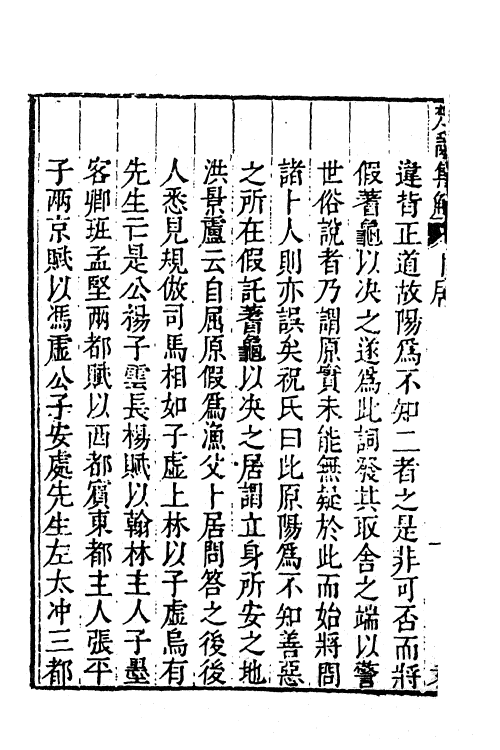 違背正道故陽爲不知二者之是非可否而將
假蓍龜以决之遂爲此詞發其取舍之端以警
世俗說者乃謂原實未能無疑於此而始將問
諸卜人則亦誤矣祝氏曰此原陽爲不知善惡
之所在假託蓍龜以决之居謂立身所安之地
洪景盧云自屈原假爲漁父卜居問答之後後
人悉見規倣司馬相如子虚上林以子虚烏有
先生亡是公揚子雲長楊賦以翰林主人子墨
客卿班孟堅兩都賦以西都賓東都主人張平
子兩京賦以馮虚公子安處先生左太冲三都
卜居